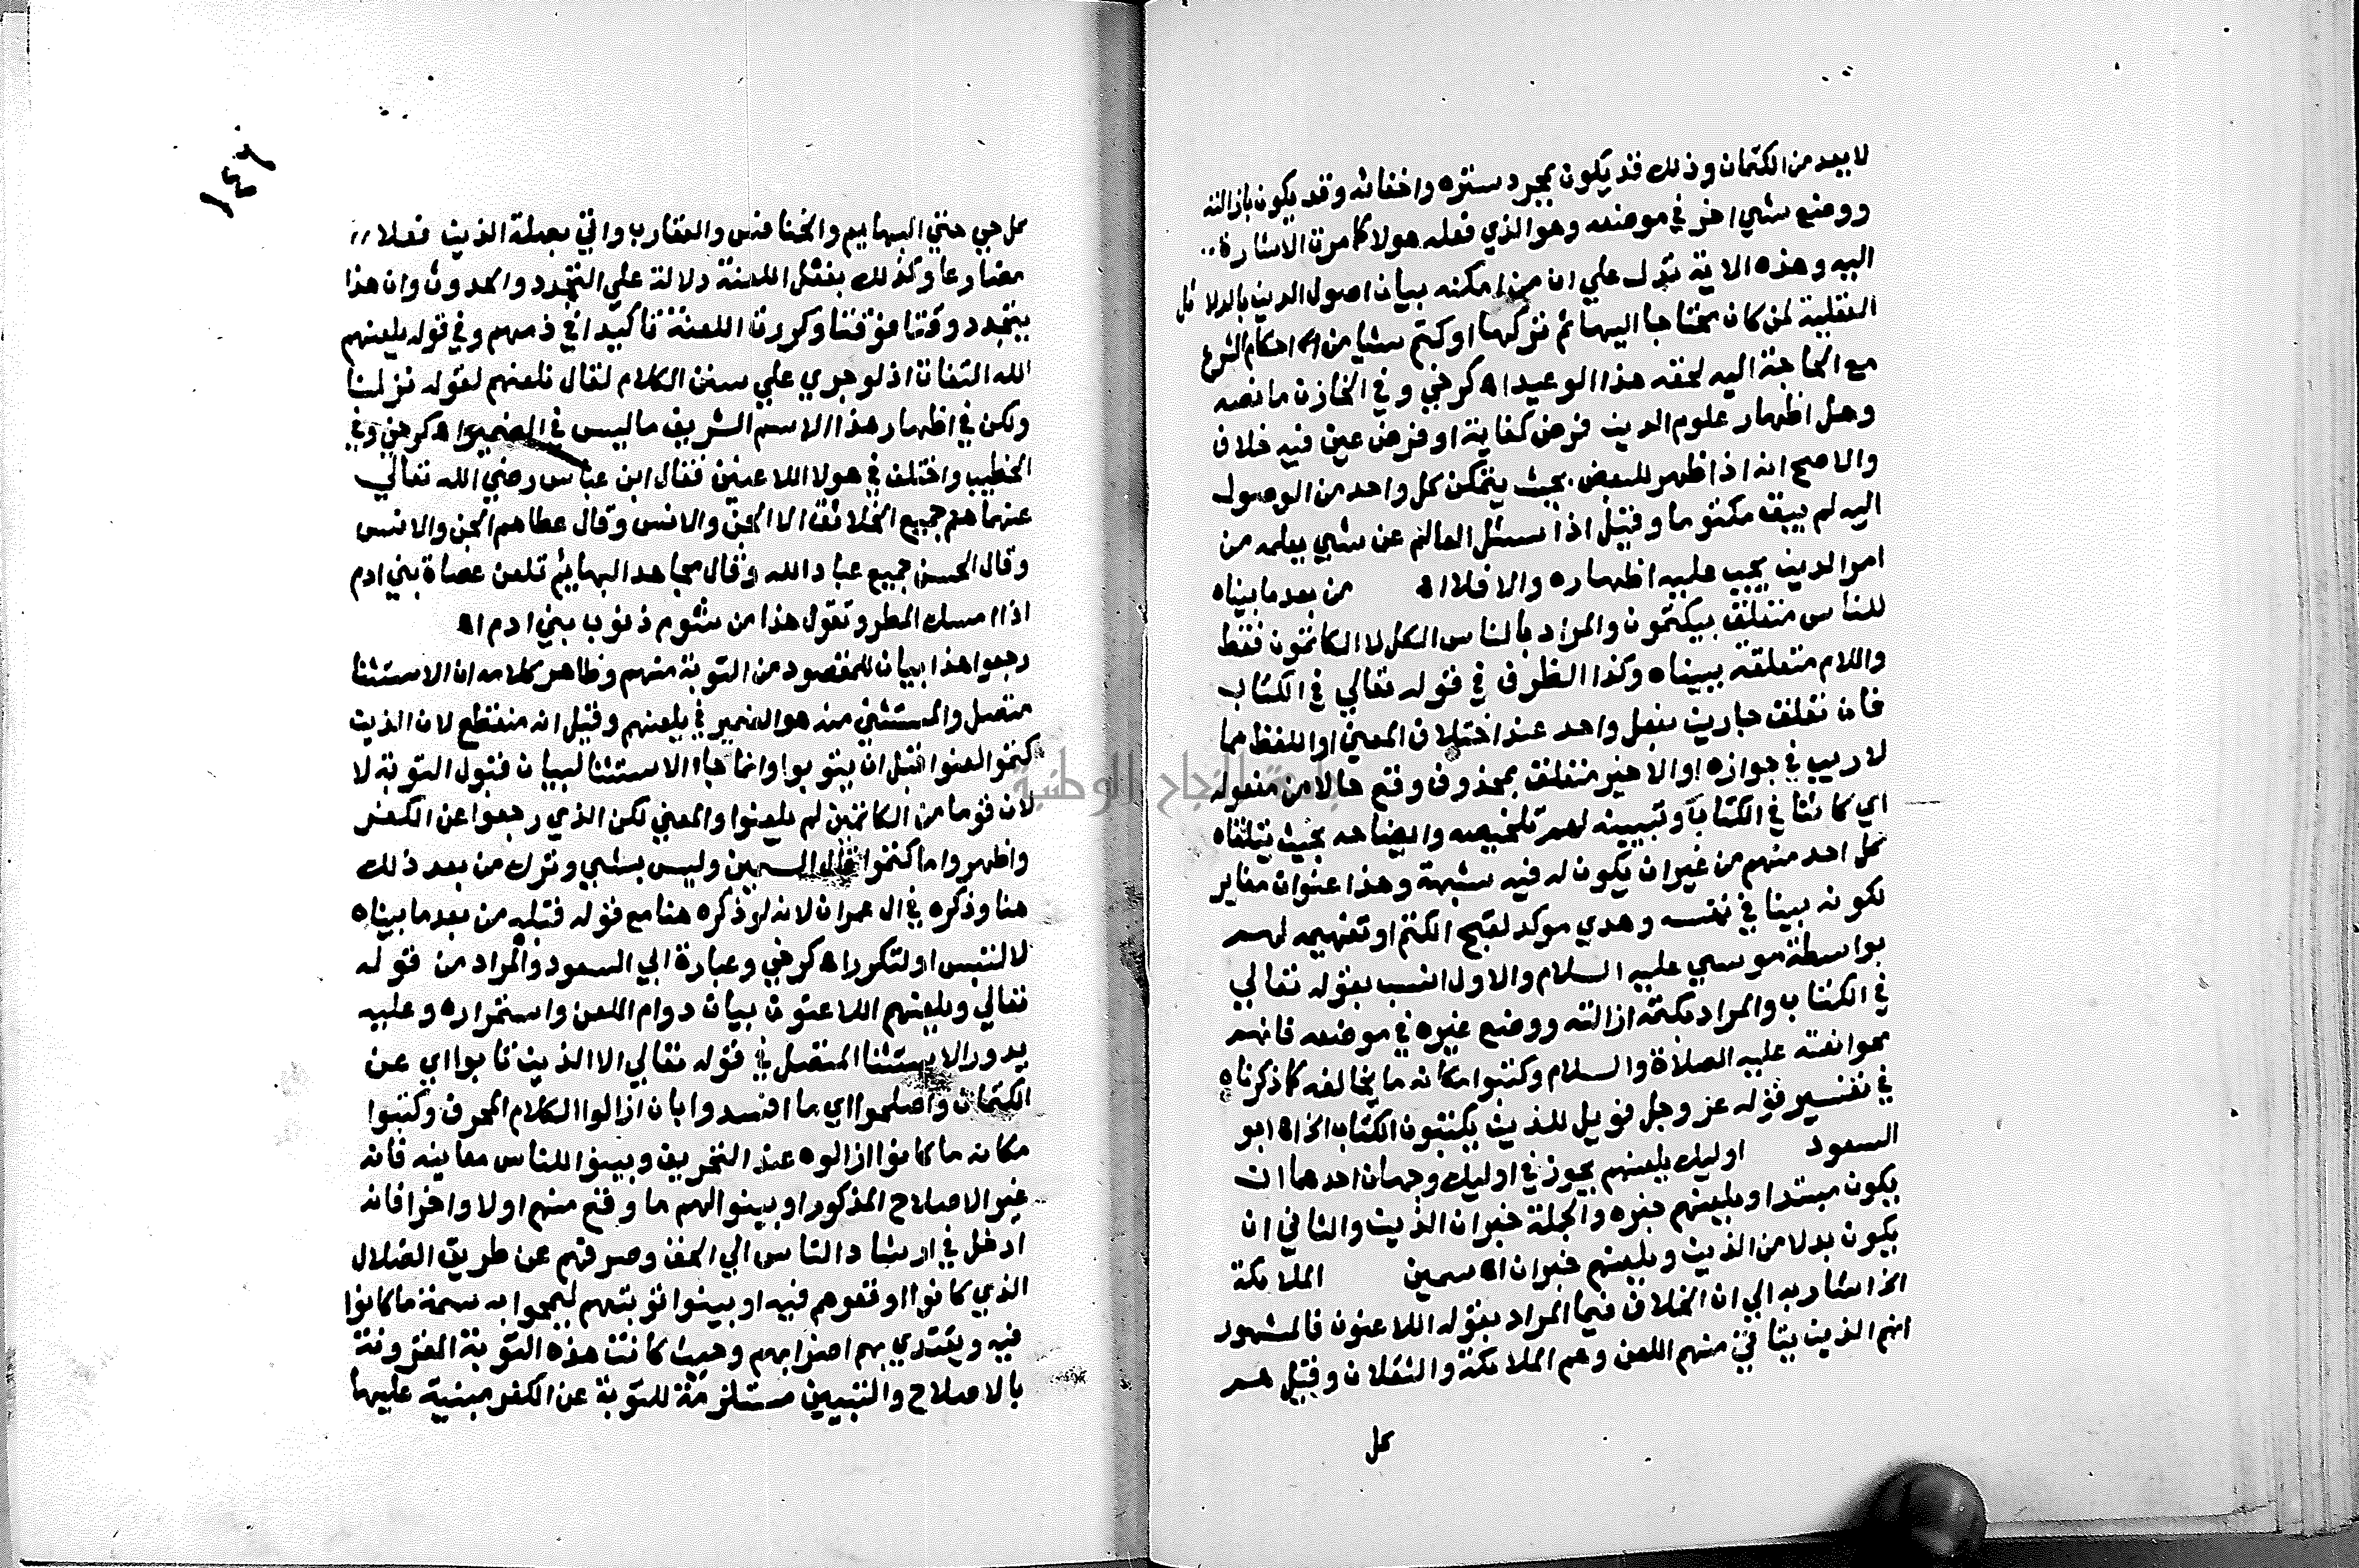 لا يعد من الكتمان وذلك قد يكون بمجرد ستره واخفائه وقد يكون بازالته
ووضع شيء اخر في موضعه وهو الذي فعله هولا كما مرت الاشارة
اليه وهذه الاية تدل علي ان من امكنه بيان اصول الدين بالدلائل
العقلية لمن كان محتاجا اليها ثم تركها او كتم شيا من احكام الشرع
مع الحاجة اليه لحقه هذا الوعيد اه كرخي وفي الخازن ما نصه
وهل اظهار علوم الدين فرض كفاية او فرض عين فيه خلاف
والاصح انه اذا ظهر للبعض بحيث يتمكن كل واحد من الوصول
اليه لم يبق مكتوما وقيل اذا سئل العالم عن شيي يعلمه من
امر الدين يجب عليه اظهاره والا فلا اه من بعد ما بيناه
للناس متعلق بيكتمون والمراد بالناس الكل لا الكاتمون فقط
واللام متعلقة ببيناه وكذا الظرف في قوله تعالي في الكتاب
فان تعلق جارين بفعل واحد عند اختلاف المعني او اللفظ مما
لا ريب في جوازه او الاخير متعلق بمحذوف وقع حالا من مفعوله
اي كائنا في الكتاب وتبيينه لهم تلخيصه وايضاحه بحيث يتلقاه
كل احد منهم من غير ان يكون له فيه شبهة وهذا عنوان مغاير
لكونه بينا في نفسه وهدي موكد لقبح الكتم او تفهيمه لهم
بواسطة موسي عليه السلام والاول انسب بقوله تعالي
في الكتاب والمراد بكتمه ازالته ووضع غيره في موضعه فانهم
محوا نعته عليه الصلاة والسلام وكتبوا مكانه ما يخالفه كما ذكرناه
في تفسير قوله عز وجل فويل للذين يكتبون الكتاب الخ اه ابو
السعود اوليك يلعنهم يجوز في اوليك وجهان احدهما ان
يكون مبتدا ويلعنهم خبره والجملة خبر ان الذين والثاني ان
يكون بدلا من الذين ويلعنهم خبر ان اه سمين الملايكة
الخ اشار به الي ان الخلاف فيما المراد بقوله اللاعنون فالمشهور
انهم الذين يتاتي منهم اللعن وهم الملايكة والثقلان وقيل هم
كل
١٤٦
كل حي حتي البهايم والخنافس والعقارب واتي بصلة الذين فعلا
مضارعا وكذلك بفعل اللعنة دلالة علي التجدد والحدوث وان هذا
يتجدد وقتا فوقتا وكررت اللعنة تاكيدا في ذمهم وفي قوله يلعنهم
الله التفات اذ لو جري علي سنن الكلام لقال نلعنهم لقوله نزلنا
ولكن في اظهار هذا الاسم الشريف ما ليس في الضمير اه كرخي وفي
الخطيب واختلف في هولا اللاعنين فقال ابن عباس رضي الله تعالي
عنهما هم جميع الخلائق الا الجن والانس وقال عطا هم الجن والانس
وقال الحسن جميع عباد الله وقال مجاهد البهائم تلعن عصاة بني ادم
اذا امسك المطر وتقول هذا من شوم ذنوب بني ادم اه
رجعوا هذا بيان للمقصود من التوبة منهم وظاهر كلامه ان الاستثنا
متصل والمستثني منه هو الضمير في يلعنهم وقيل انه منقطع لان الذين
كتموا لعنوا قبل ان يتوبوا وانما جا الاستثنا لبيان قبول التوبة لا
لان قوما من الكاتمين لم يلعنوا والمعني لكن الذي رجعوا عن الكفر
واظهروا ما كتموا قال السمين وليس بشيي وترك من بعد ذلك
هنا وذكره في ال عمران لانه لو ذكره هنا مع قوله قبله من بعد ما بيناه
لالتبس او لتكرر اه كرخي وعبارة ابي السعود والمراد من قوله
تعالي ويلعنهم اللاعنون بيان دوام اللعن واستمراره وعليه
يدور الاستثنا المتصل في قوله تعالي الا الذين تابوا اي عن
الكتمان واصلحوا اي ما افسدوا بان ازالوا الكلام المحرف وكتبوا
مكانه ما كانوا ازالوه عند التحريف وبينوا للناس معانيه فانه
غير الاصلاح المذكور او بينوا لهم ما وقع منهم اولا واخرا فانه
ادخل في ارشاد الناس الي الحق وصرفهم عن طريق الضلال
الذي كانوا اوقعوهم فيه او بينوا توبتهم ليمحوا به سمة ما كانوا
فيه ويقتدي بهم اضرابهم وحيث كانت هذه التوبة المقرونة
بالاصلاح والتبيين مستلزمة للتوبة عن الكفر مبنية عليها
جامعة النجاح الوطنية